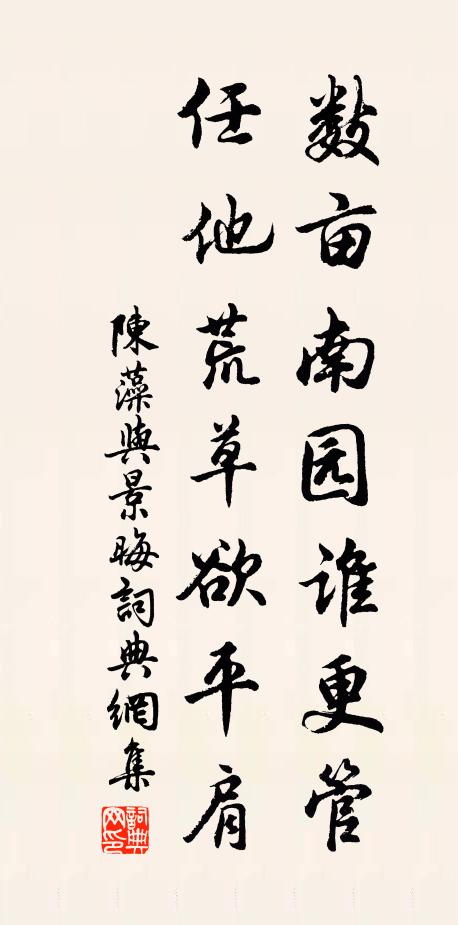 数亩南园谁更管
任他荒草欲平肩
陳藻與景晦詞典網集
詞典网印